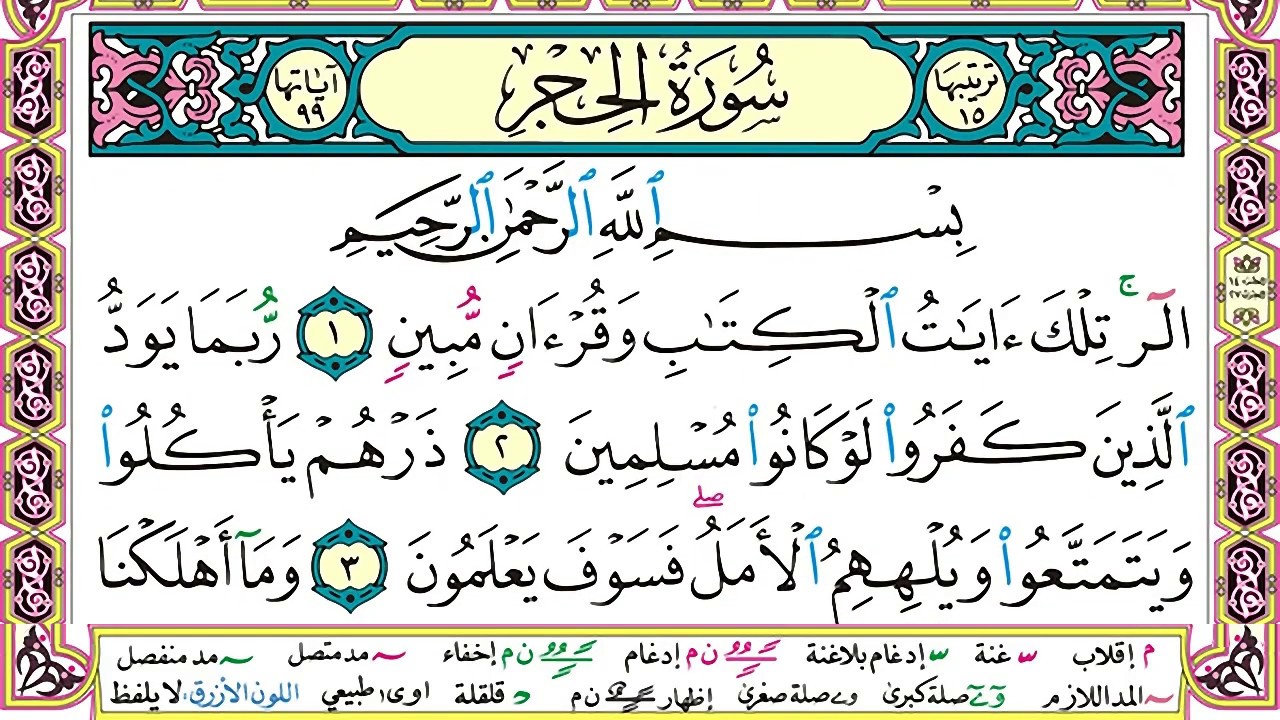 ترتيبها ١٥
سُورَةُ الحِجْرِ
آيَاتها ٩٩
بِسْمِ ٱللَّهِ ٱلرَّحْمَٰنِ ٱلرَّحِيمِ
الٓر ۚ تِلْكَ ءَايَٰتُ ٱلْكِتَٰبِ وَقُرْءَانٍ مُّبِينٍ ١ رُّبَمَا يَوَدُّ
ٱلَّذِينَ كَفَرُوا۟ لَوْ كَانُوا۟ مُسْلِمِينَ ٢ ذَرْهُمْ يَأْكُلُوا۟
وَيَتَمَتَّعُوا۟ وَيُلْهِهِمُ ٱلْأَمَلُ ۖ فَسَوْفَ يَعْلَمُونَ ٣ وَمَآ أَهْلَكْنَا
م إقلاب س غنة س إدغام بلاغنة ن م إدغام ن م إخفاء مد متصل مد منفصل
المد اللازم و ے صلة كبرى و ے صلة صغرى ن م إظهار د قلقلة اوى١ طبيعي اللون الأزرق: لا يلفظ